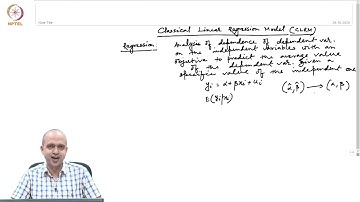 NPTEL
Classical Linear Regression Model (CLRM)
Regression: Analysis of dependence of dependent var.
on the independent variables with an
objective to predict the average value
of the dependent var. given a
specific value of the independent one
yᵢ = α + βxᵢ + uᵢ (α̂, β̂) → (α, β)
E(yᵢ|xᵢ)